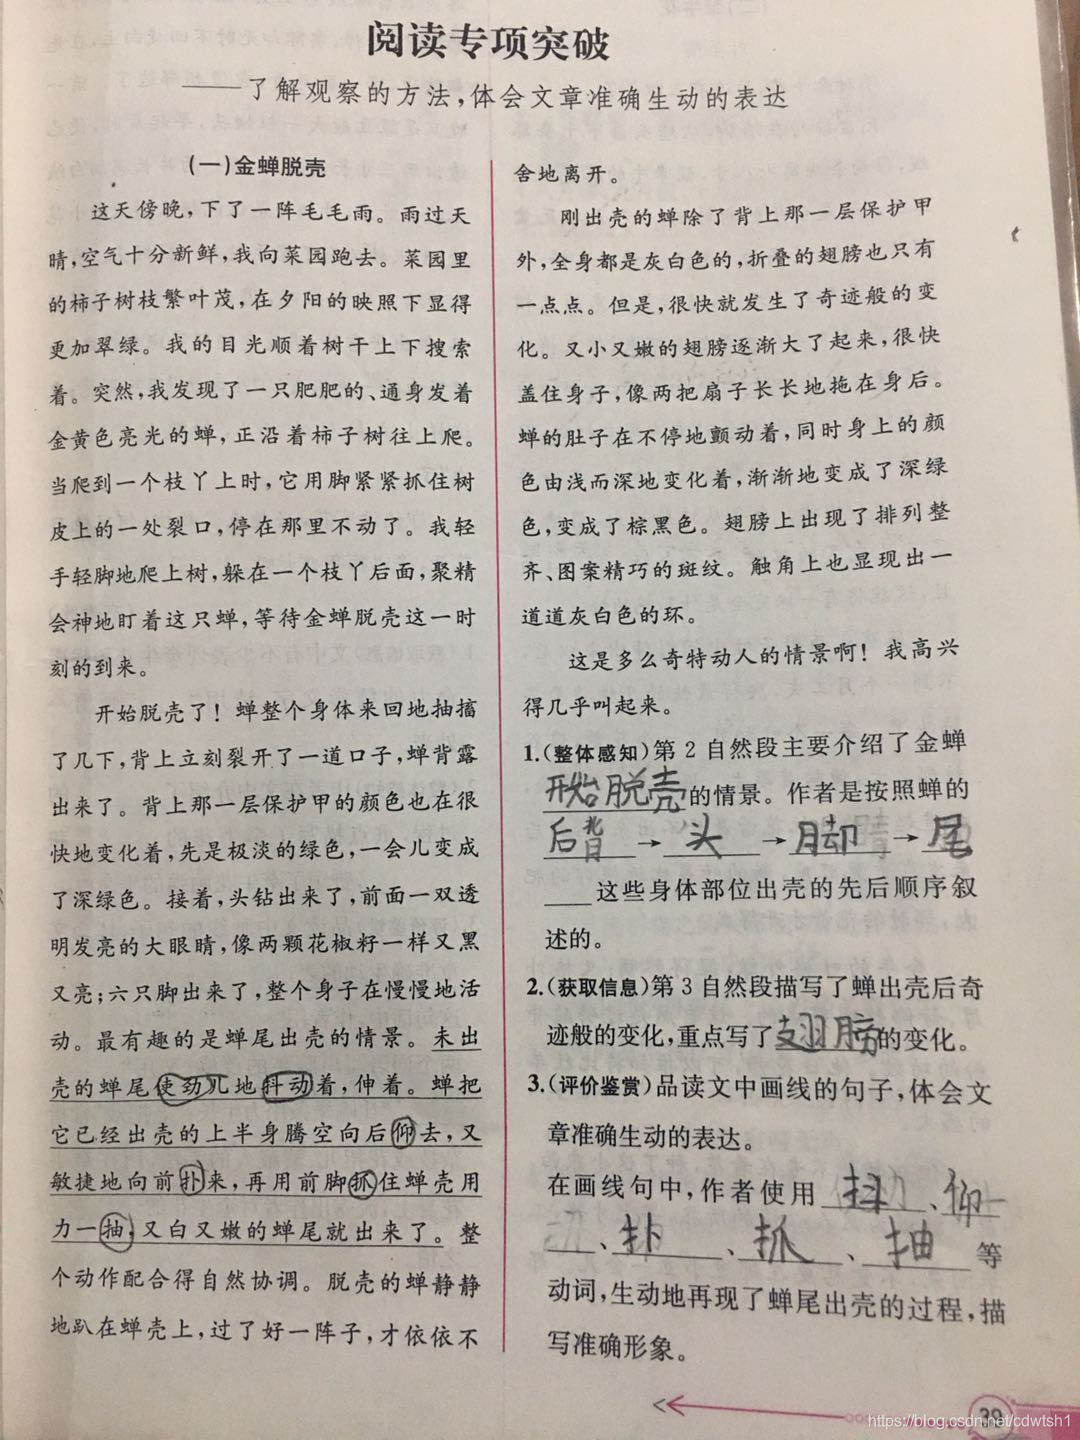 阅读专项突破
——了解观察的方法,体会文章准确生动的表达
(一)金蝉脱壳
这天傍晚,下了一阵毛毛雨。雨过天
晴,空气十分新鲜,我向菜园跑去。菜园里
的柿子树枝繁叶茂,在夕阳的映照下显得
更加翠绿。我的目光顺着树干上下搜索
着。突然,我发现了一只肥肥的、通身发着
金黄色亮光的蝉,正沿着柿子树往上爬。
当爬到一个枝丫上时,它用脚紧紧抓住树
皮上的一处裂口,停在那里不动了。我轻
手轻脚地爬上树,躲在一个枝丫后面,聚精
会神地盯着这只蝉,等待金蝉脱壳这一时
刻的到来。
开始脱壳了!蝉整个身体来回地抽搐
了几下,背上立刻裂开了一道口子,蝉背露
出来了。背上那一层保护甲的颜色也在很
快地变化着,先是极淡的绿色,一会儿变成
了深绿色。接着,头钻出来了,前面一双透
明发亮的大眼睛,像两颗花椒籽一样又黑
又亮;六只脚出来了,整个身子在慢慢地活
动。最有趣的是蝉尾出壳的情景。未出
壳的蝉尾使劲儿地抖动着,伸着。蝉把
它已经出壳的上半身腾空向后仰去,又
敏捷地向前扑来,再用前脚抓住蝉壳用
力一抽,又白又嫩的蝉尾就出来了。整
个动作配合得自然协调。脱壳的蝉静静
地趴在蝉壳上,过了好一阵子,才依依不
舍地离开。
刚出壳的蝉除了背上那一层保护甲
外,全身都是灰白色的,折叠的翅膀也只有
一点点。但是,很快就发生了奇迹般的变
化。又小又嫩的翅膀逐渐大了起来,很快
盖住身子,像两把扇子长长地拖在身后。
蝉的肚子在不停地颤动着,同时身上的颜
色由浅而深地变化着,渐渐地变成了深绿
色,变成了棕黑色。翅膀上出现了排列整
齐、图案精巧的斑纹。触角上也显现出一
道道灰白色的环。
这是多么奇特动人的情景啊!我高兴
得几乎叫起来。
1.(整体感知)第2自然段主要介绍了金蝉
开始脱壳的情景。作者是按照蝉的
后背→头→脚→尾
这些身体部位出壳的先后顺序叙
述的。
2.(获取信息)第3自然段描写了蝉出壳后奇
迹般的变化,重点写了翅膀的变化。
3.(评价鉴赏)品读文中画线的句子,体会文
章准确生动的表达。
在画线句中,作者使用抖、仰
、扑、抓、抽等
动词,生动地再现了蝉尾出壳的过程,描
写准确形象。
39
https://blog.csdn.net/cdwtsh1